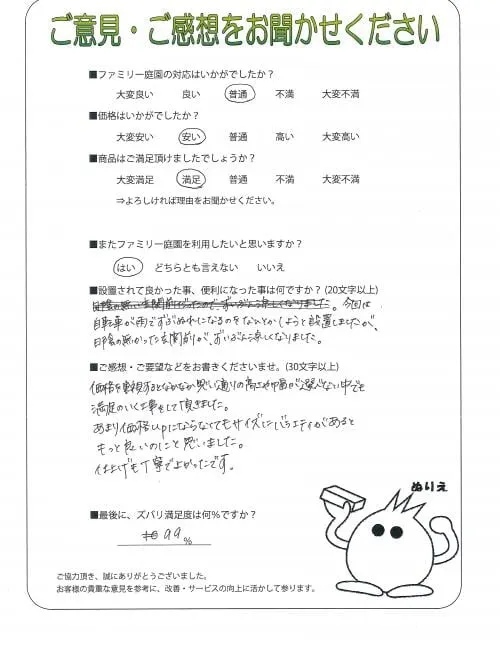 ご意見・ご感想をお聞かせください
■ファミリー庭園の対応はいかがでしたか？
大変良い 良い 普通 不満 大変不満
■価格はいかがでしたか？
大変安い 安い 普通 高い 大変高い
■商品はご満足頂けましたでしょうか？
大変満足 満足 普通 不満 大変不満
⇒よろしければ理由をお聞かせください。
■またファミリー庭園を利用したいと思いますか？
はい どちらとも言えない いいえ
■設置されて良かった事、便利になった事は何ですか？(20文字以上)
日陰の無い玄関前だったので、ずいぶん涼しくなりました。今回は
自転車が雨でずぶぬれになるのをなんとかしようと設置しましたが、
日陰の無かった玄関前が、ずいぶん涼しくなりました。
■ご感想・ご要望などをお書きくださいませ。(30文字以上)
価格を重視するとなかなか思い通りの高さや幅が選べない中でも
満足のいく工事をして頂きました。
あまり価格UPにならなくてもサイズにバラエティがあると
もっと良いのにと思いました。
仕上げも丁寧でよかったです。
ぬりえ
■最後に、ズバリ満足度は何％ですか？
99 %
ご協力頂き、誠にありがとうございました。
お客様の貴重な意見を参考に、改善・サービスの向上に活かして参ります。